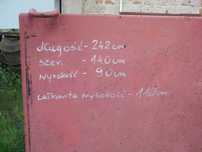 długość - 242cm
szer. - 140cm
wysokość - 90cm
całkowita wysokość - 112cm